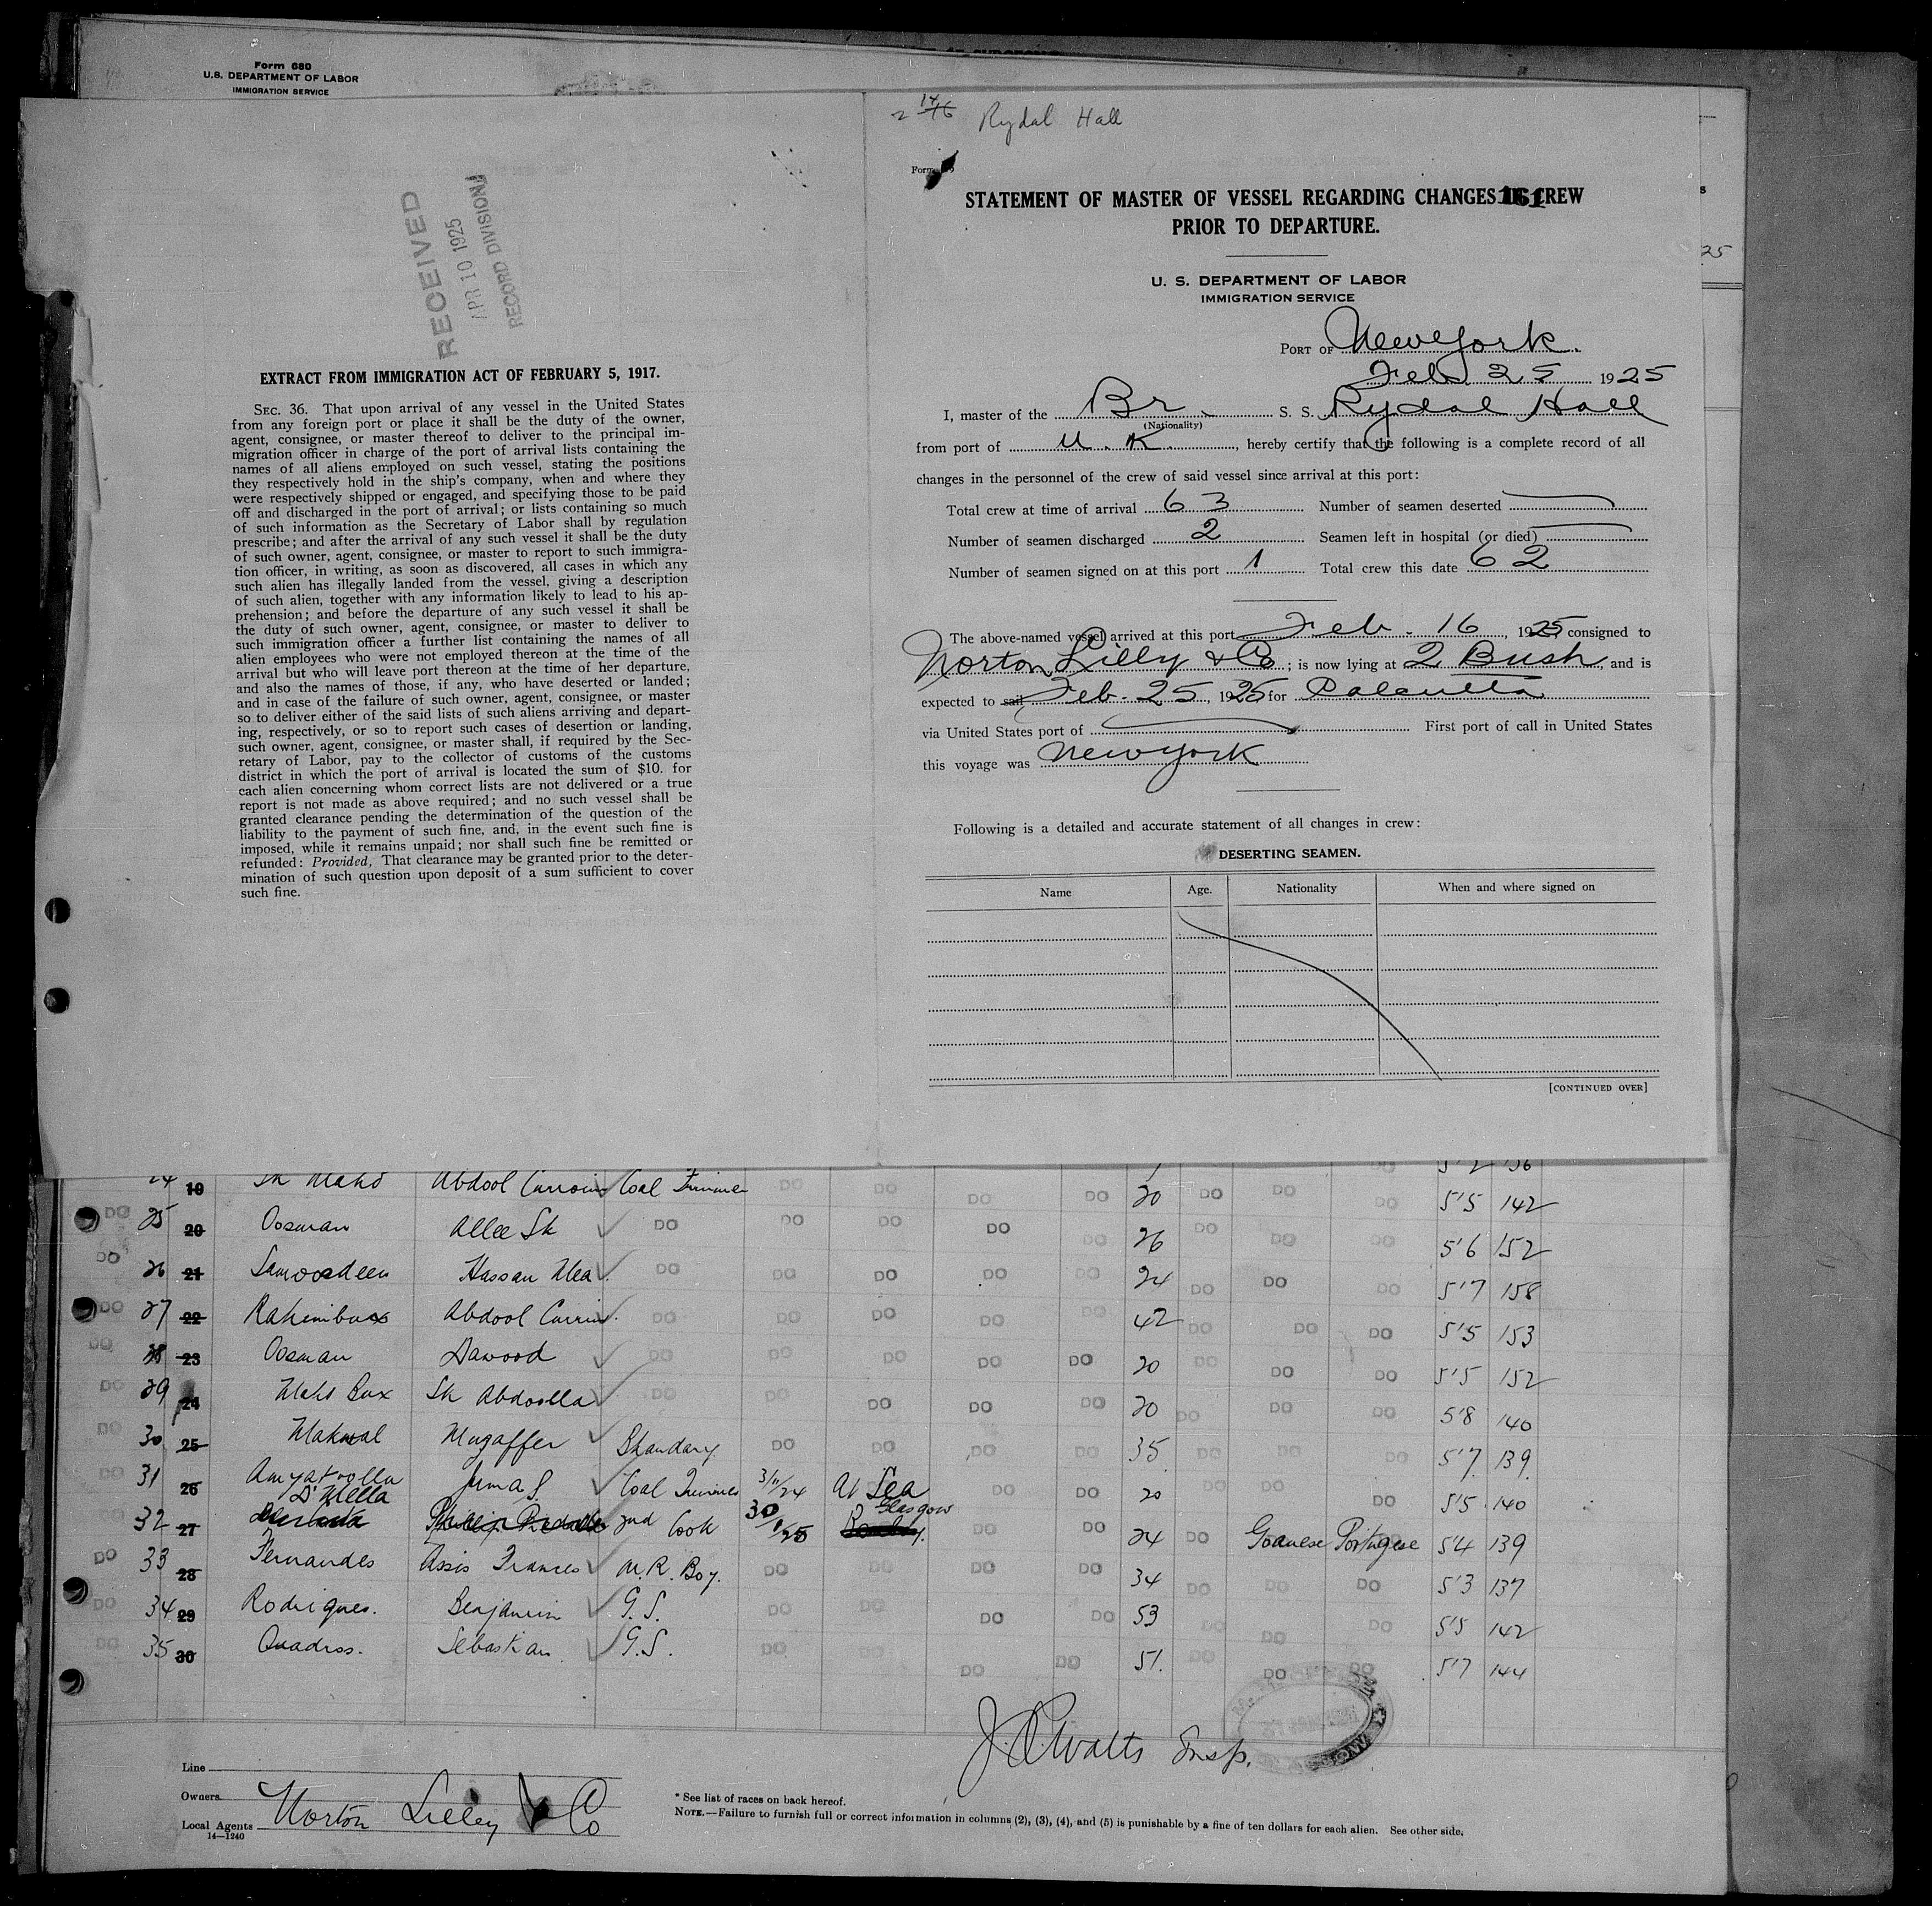 Form 680
U.S. DEPARTMENT OF LABOR
IMMIGRATION SERVICE
RECEIVED
APR 10 1925
RECORD DIVISION
EXTRACT FROM IMMIGRATION ACT OF FEBRUARY 5, 1917.
SEC. 36. That upon arrival of any vessel in the United States
from any foreign port or place it shall be the duty of the owner,
agent, consignee, or master thereof to deliver to the principal im-
migration officer in charge of the port of arrival lists containing the
names of all aliens employed on such vessel, stating the positions
they respectively hold in the ship's company, when and where they
were respectively shipped or engaged, and specifying those to be paid
off and discharged in the port of arrival; or lists containing so much
of such information as the Secretary of Labor shall by regulation
prescribe; and after the arrival of any such vessel it shall be the duty
of such owner, agent, consignee, or master to report to such immigra-
tion officer, in writing, as soon as discovered, all cases in which any
such alien has illegally landed from the vessel, giving a description
of such alien, together with any information likely to lead to his ap-
prehension; and before the departure of any such vessel it shall be
the duty of such owner, agent, consignee, or master to deliver to
such immigration officer a further list containing the names of all
alien employees who were not employed thereon at the time of the
arrival but who will leave port thereon at the time of her departure,
and also the names of those, if any, who have deserted or landed;
and in case of the failure of such owner, agent, consignee, or master
so to deliver either of the said lists of such aliens arriving and depart-
ing, respectively, or so to report such cases of desertion or landing,
such owner, agent, consignee, or master shall, if required by the Sec-
retary of Labor, pay to the collector of customs of the customs
district in which the port of arrival is located the sum of $10. for
each alien concerning whom correct lists are not delivered or a true
report is not made as above required; and no such vessel shall be
granted clearance pending the determination of the question of the
liability to the payment of such fine, and, in the event such fine is
imposed, while it remains unpaid; nor shall such fine be remitted or
refunded: Provided, That clearance may be granted prior to the deter-
mination of such question upon deposit of a sum sufficient to cover
such fine.
Rydal Hall
Form
STATEMENT OF MASTER OF VESSEL REGARDING CHANGES IN CREW
161
PRIOR TO DEPARTURE.
U. S. DEPARTMENT OF LABOR
IMMIGRATION SERVICE
PORT OF New York.
Feb 25 1925
I, master of the Br. S. S. Rydal Hall
(Nationality)
from port of U. K., hereby certify that the following is a complete record of all
changes in the personnel of the crew of said vessel since arrival at this port:
Total crew at time of arrival 63 Number of seamen deserted
Number of seamen discharged 2 Seamen left in hospital (or died)
Number of seamen signed on at this port 1 Total crew this date 62
The above-named vessel arrived at this port Feb. 16, 1925 consigned to
Norton Lilly & Co; is now lying at 2 Bush, and is
expected to sail Feb. 25, 1925 for Calcutta
via United States port of First port of call in United States
this voyage was New York
Following is a detailed and accurate statement of all changes in crew:
DESERTING SEAMEN.
Name Age. Nationality When and where signed on
[CONTINUED OVER]
24 19 Sk Mahd Abdool Curroim Coal Trimmer DO DO DO DO 20 DO DO DO 5'5 142
DO 25 20 Oosman Allee Sk DO DO DO DO DO 26 DO DO DO 5'6 152
DO 26 21 Samoodeen Hassan Mea DO DO DO DO DO 24 DO DO DO 5'7 158
DO 27 22 Rahimbux Abdool Currim DO DO DO DO DO 42 DO DO DO 5'5 153
DO 28 23 Oosman Dawood DO DO DO DO DO 20 DO DO DO 5'5 152
DO 29 24 Mahd Bux Sk Abdoolla DO DO DO DO DO 20 DO DO DO 5'8 140
DO 30 25 Makwal Mugaffer Bhandary DO DO DO DO 35 DO DO DO 5'7 139
DO 31 26 Amyatoolla Juma S Coal Trimmer 3/11/24 At Sea DO DO 20 DO DO DO 5'5 140
32 27 D'Mella 2nd Cook 30/1/25 Glasgow DO DO 24 DO Goanese Portugese 5'4 139
DO 33 28 Fernandes Assis Frances M.R. Boy. DO DO DO DO 34 DO DO DO 5'3 137
DO 34 29 Rodrigues. Benjamin G.S. DO DO DO DO 53 DO DO DO 5'5 142
DO 35 30 Quadros. Sebastian G.S. DO DO DO 51. DO DO DO 5'7 144
J. C. Watts Insp.
Line
Owners
Local Agents Norton Lilley & Co
14—1240
* See list of races on back hereof.
NOTE.—Failure to furnish full or correct information in columns (2), (3), (4), and (5) is punishable by a fine of ten dollars for each alien. See other side.